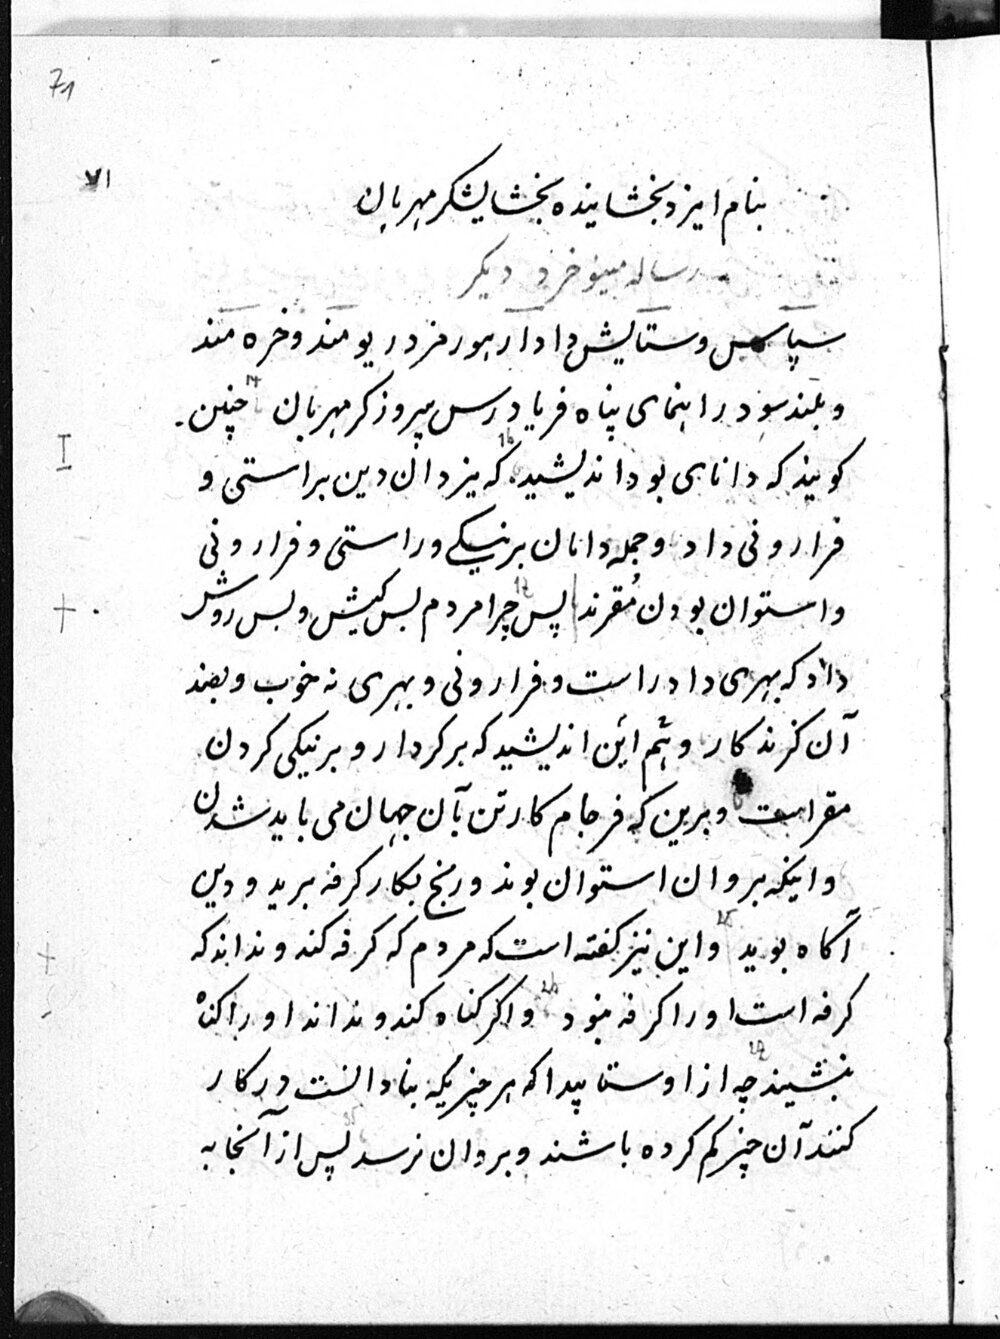 71
۷۱
بنام ایزد بخشاینده بخشایشگر مهربان
رساله مینوخرد دیگر
سپاس و ستایش دادار هورمزد ریومند و خره مند
و بلند سود راهنمای پناه فریادرس پیروزگر مهربان چنین
گویند که دانای بود اندیشید که یزدان دین براستی و
فرارونی داد و جمله دانان بر نیکی و راستی و فرارونی
و استوان بودن مقرند پس چرا مردم بس کیش و بس روش
داد که بهری داد راست و فرارونی و بهری نه خوب و بصند
آن کزند کار و هم این اندیشید که بر کردار و بر نیکی کردن
مقراست و برین که فرجام کار تن بآن جهان می باید شدن
و اینکه بروان استوان بوند و رنج بکار کرفه برید و دین
آگاه بوید و این نیز گفته است که مردم که کرفه کند و نداند که
کرفه است او را کرفه نبود و اگر گناه کند و نداند او را گناه
بنشیند چه از اوستا پیدا که هر چیزیکه بنادانست در کار
کنند آن چیز کم کرده باشند و بروان نرسد پس از آنجا به